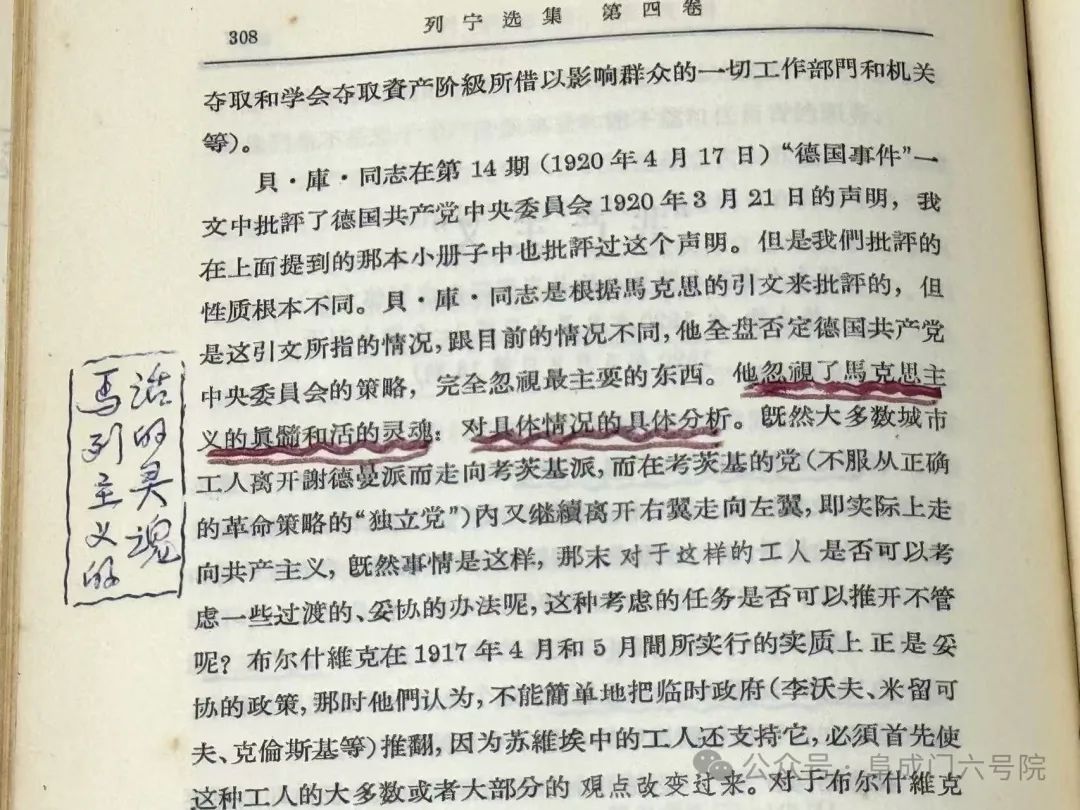 308
列宁选集 第四卷
夺取和学会夺取資产阶級所借以影响群众的一切工作部門和机关
等)。
貝·庫·同志在第 14 期 (1920 年 4 月 17 日) “德国事件”一
文中批評了德国共产党中央委員会 1920 年 3 月 21 日的声明，我
在上面提到的那本小册子中也批評过这个声明。但是我們批評的
性质根本不同。貝·庫·同志是根据馬克思的引文来批評的，但
是这引文所指的情况，跟目前的情况不同，他全盘否定德国共产党
中央委員会的策略，完全忽視最主要的东西。他忽視了馬克思主
义的眞髓和活的灵魂：对具体情况的具体分析。既然大多数城市
工人离开謝德曼派而走向考茨基派，而在考茨基的党(不服从正确
的革命策略的“独立党”)內又继續离开右翼走向左翼，即实际上走
向共产主义，既然事情是这样，那末对于这样的工人是否可以考
虑一些过渡的、妥协的办法呢，这种考虑的任务是否可以推开不管
呢？布尔什維克在 1917 年 4 月和 5 月間所实行的实质上正是妥
协的政策，那时他們认为，不能簡单地把临时政府(李沃夫、米留可
夫、克倫斯基等)推翻，因为苏維埃中的工人还支持它，必須首先使
这种工人的大多数或者大部分的观点改变过来。对于布尔什維克
馬列主义的
活的灵魂
公众号·阜成门六号院